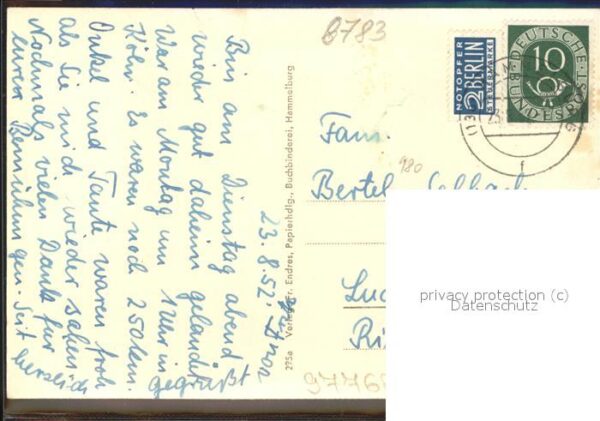 23.8.52
Bin am Dienstag abend
wieder gut daheim gelandet
War am Montag um 1 Uhr in
Köln. Es waren noch 250 km.
Onkel und Tante waren froh
als Sie mich wieder sahen.
Nochmals vielen Dank für
eure Bemühungen. Seit herzlich
gegrüßt
275a Verlag: Fr. Endres, Papierhdlg., Buchbinderei, Hammelburg
B783
NOTOPFER
2 BERLIN
STEUERMARKE
DEUTSCHE
10
BUNDESPOST
Fam.
980
Bertel
privacy protection (c)
Datenschutz